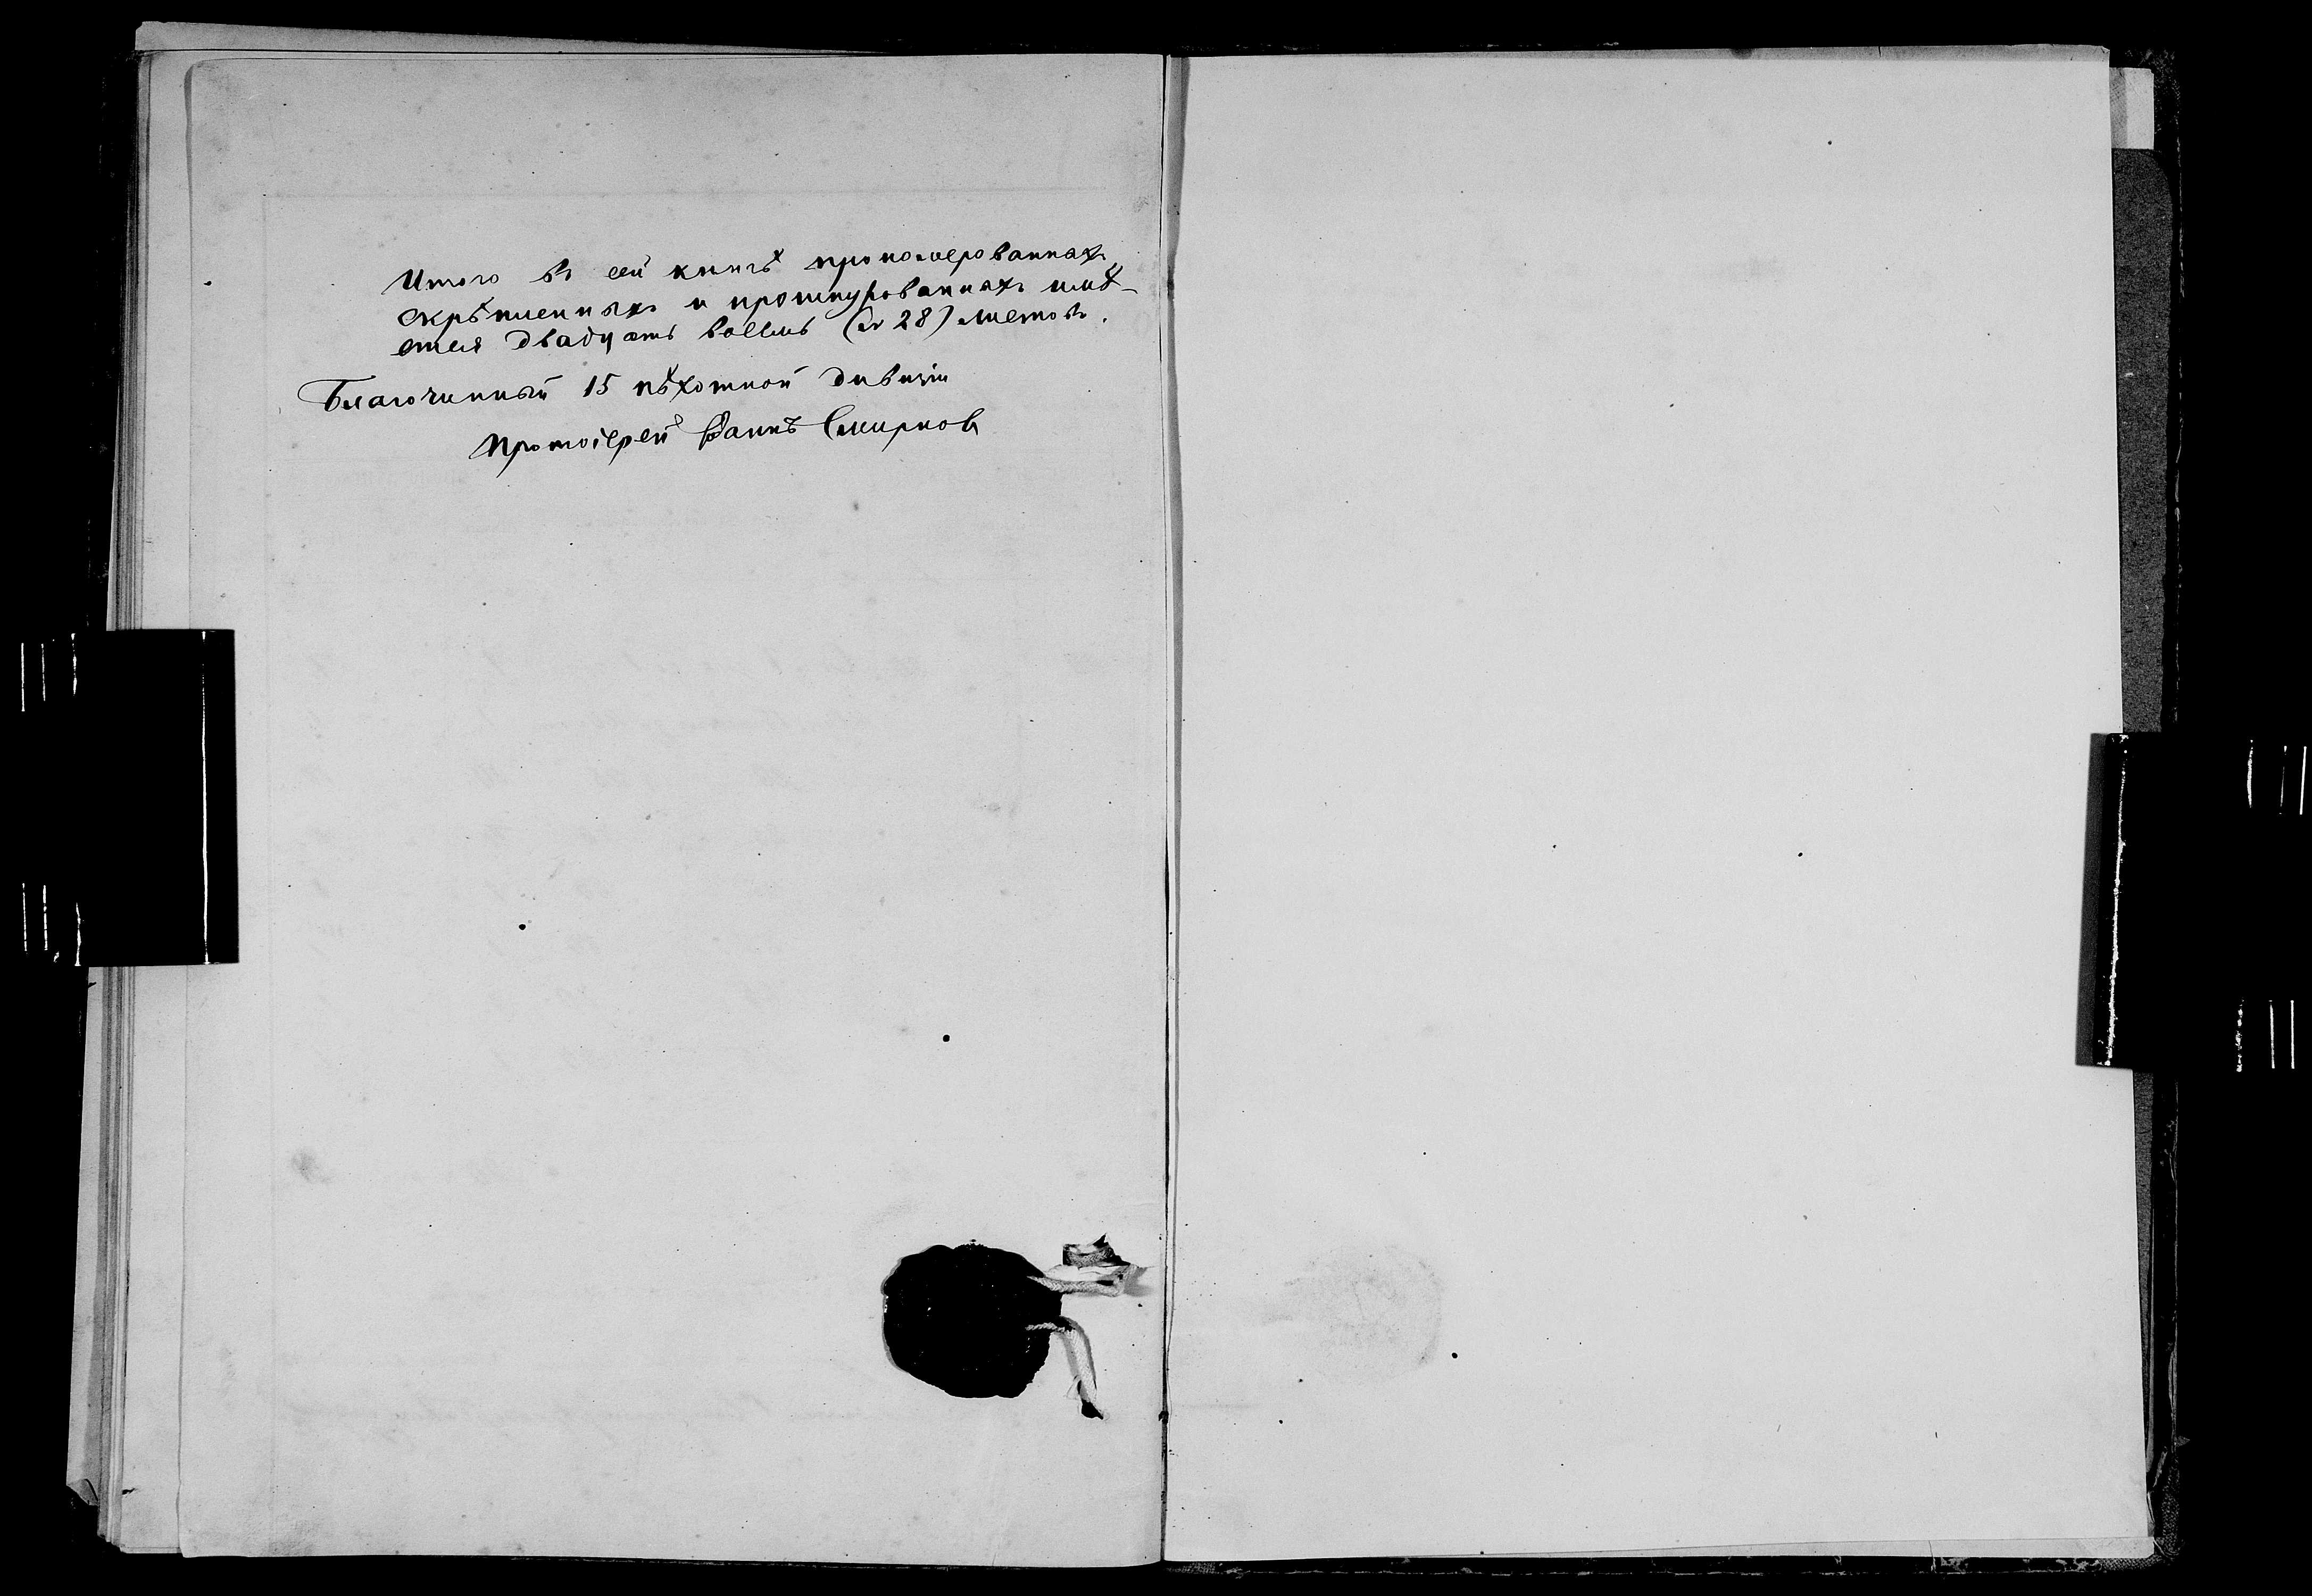 Итого въ сей книгѣ прономерованныхъ,
скрѣпленныхъ и прошнурованныхъ имѣ-
ется двадцать восемь (№ 28) листовъ.
Благочинный 15 пѣхотной дивизіи
Протоіерей Смирновъ